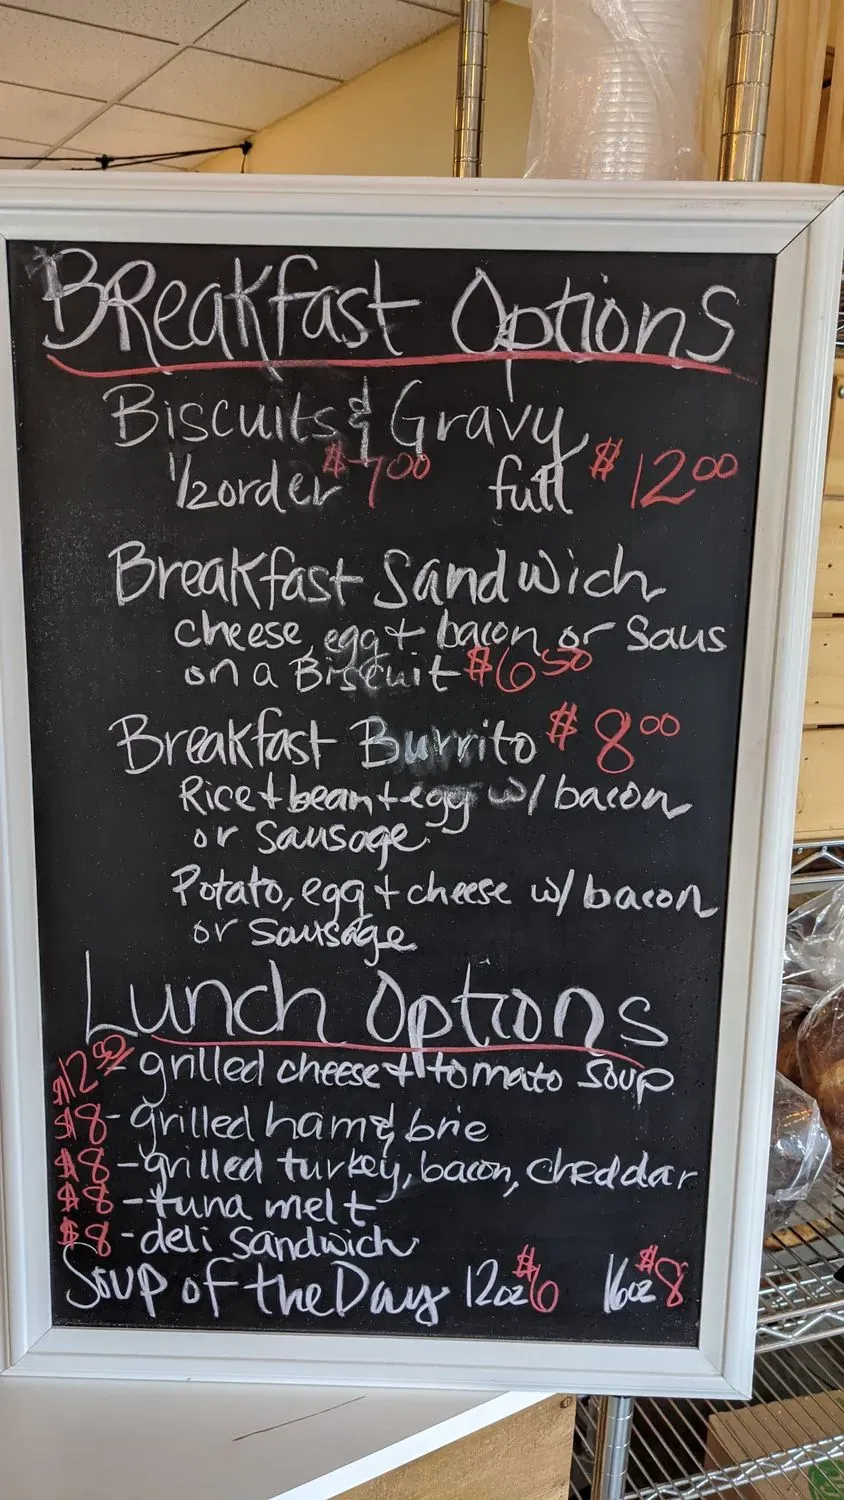 Breakfast Options
Biscuits & Gravy
1/2 order $7.00 full $12.00
Breakfast Sandwich
cheese, egg + bacon or Saus
on a Biscuit $6.50
Breakfast Burrito $8.00
Rice + bean + egg w/ bacon
or Sausage
Potato, egg + cheese w/ bacon
or Sausage
Lunch Options
$12.50 - grilled cheese + tomato Soup
$8 - grilled ham & brie
$8 - grilled turkey, bacon, cheddar
$8 - tuna melt
$8 - deli Sandwich
Soup of the Day 12oz $6 16oz $8